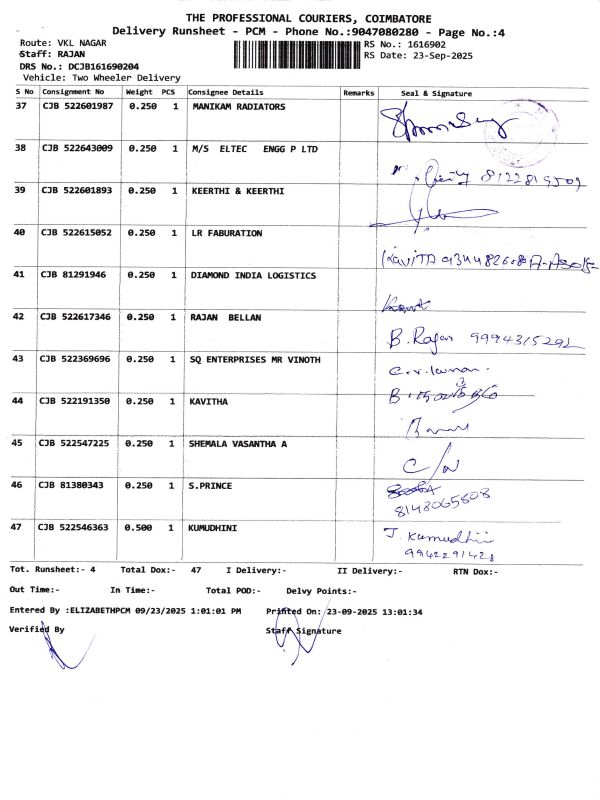 THE PROFESSIONAL COURIERS, COIMBATORE
Delivery Runsheet - PCM - Phone No.:9047080280 - Page No.:4
Route: VKL NAGAR RS No.: 1616902
Staff: RAJAN RS Date: 23-Sep-2025
DRS No.: DCJB161690204
Vehicle: Two Wheeler Delivery
S No Consignment No Weight PCS Consignee Details Remarks Seal & Signature
37 CJB 522601987 0.250 1 MANIKAM RADIATORS
38 CJB 522643009 0.250 1 M/S ELTEC ENGG P LTD
8122819509
39 CJB 522601893 0.250 1 KEERTHI & KEERTHI
40 CJB 522615052 0.250 1 LR FABURATION
41 CJB 81291946 0.250 1 DIAMOND INDIA LOGISTICS
42 CJB 522617346 0.250 1 RAJAN BELLAN
B. Rajan 9994315292
43 CJB 522369696 0.250 1 SQ ENTERPRISES MR VINOTH
44 CJB 522191350 0.250 1 KAVITHA
45 CJB 522547225 0.250 1 SHEMALA VASANTHA A
46 CJB 81380343 0.250 1 S.PRINCE
8148065808
47 CJB 522546363 0.500 1 KUMUDHINI
J. Kumudhini
9942291428
Tot. Runsheet:- 4 Total Dox:- 47 I Delivery:- II Delivery:- RTN Dox:-
Out Time:- In Time:- Total POD:- Delvy Points:-
Entered By :ELIZABETHPCM 09/23/2025 1:01:01 PM Printed On: 23-09-2025 13:01:34
Verified By Staff Signature